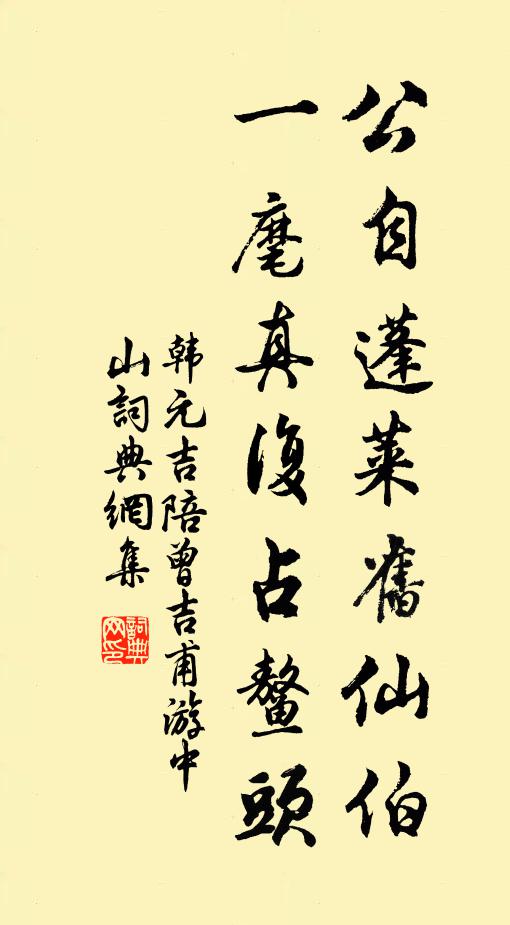 公自蓬莱舊仙伯
一麾真復占鰲頭
韩元吉陪曾吉甫游中
山詞典網集
詞典
网印